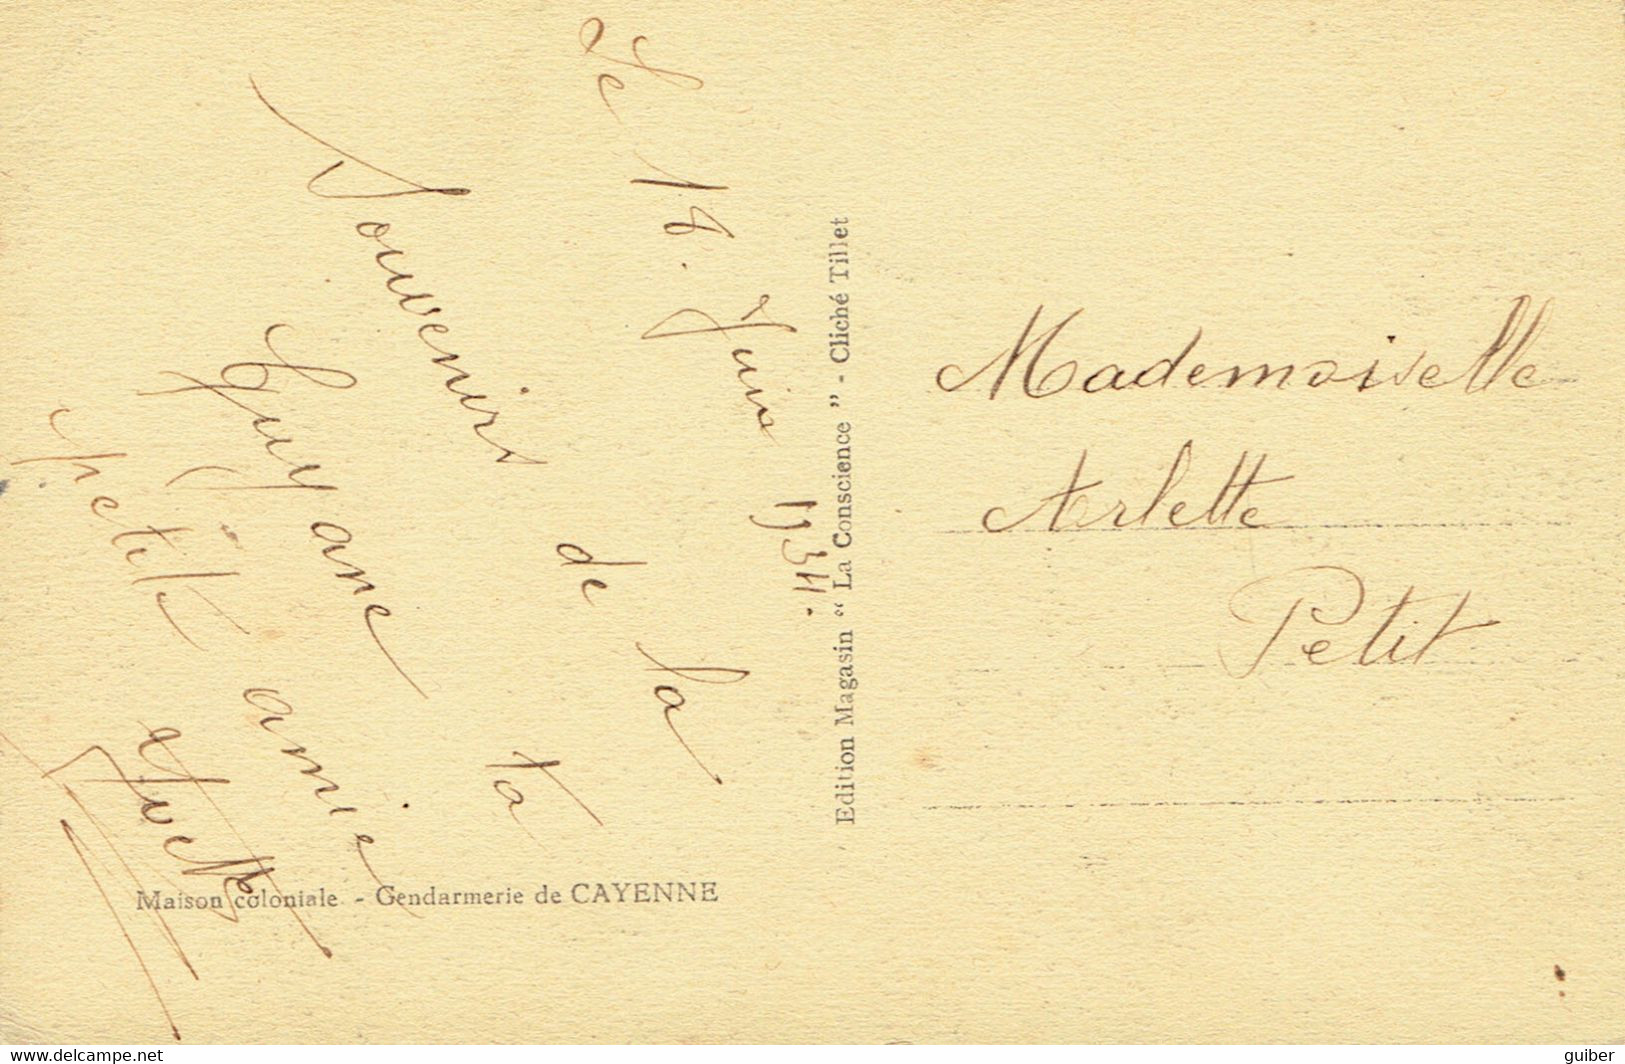 Le 18 Juin 1934.
Souvenirs de la
Guyane ta
petite amie
Yvette
Edition Magasin “ La Conscience ” - Cliché Tillet
Mademoiselle
Arlette
Petit
Maison coloniale - Gendarmerie de CAYENNE
https://www.delcampe.net
guiber